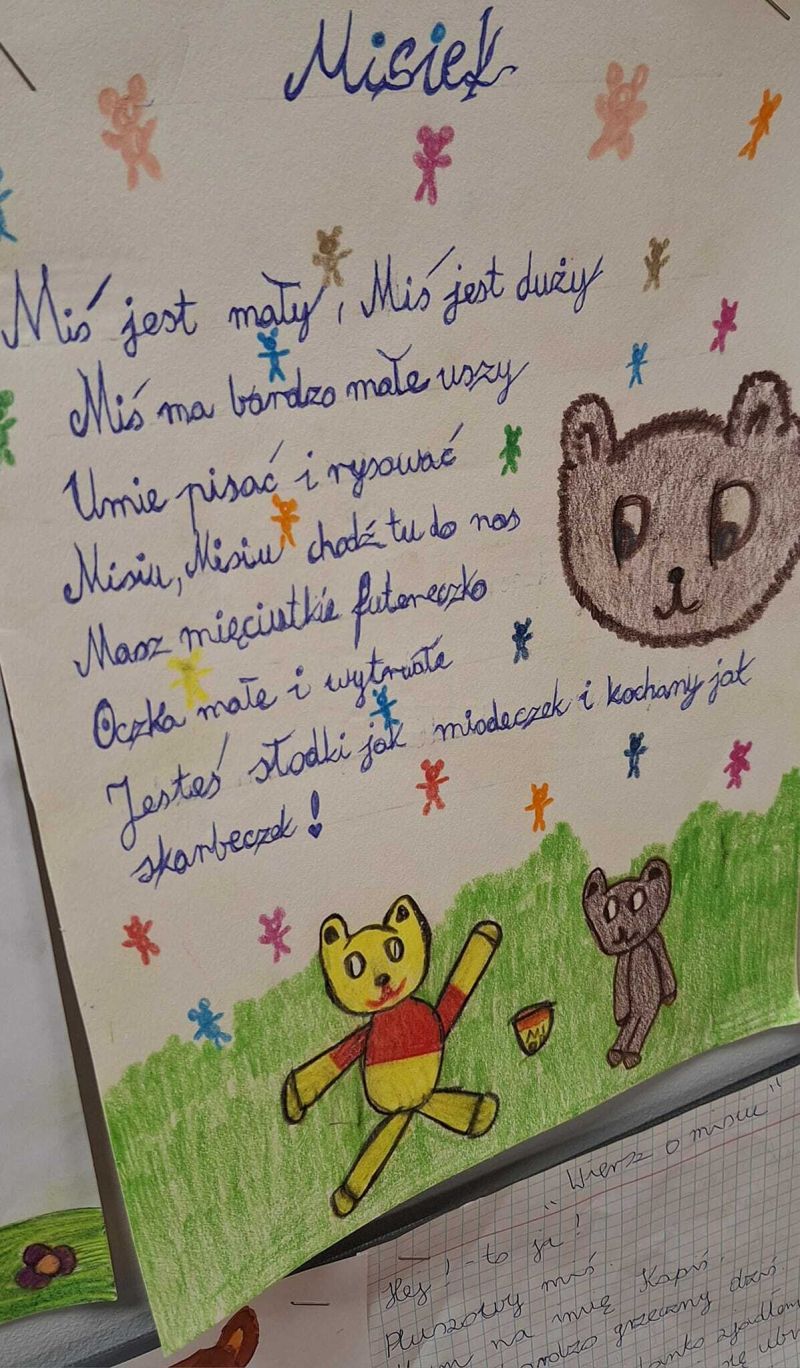 Misiek
Miś jest mały, Miś jest duży
Miś ma bardzo małe uszy
Umie pisać i rysować
Misiu, Misiu chodź tu do nas
Masz mięciutkie futereczko
Oczka małe i wytrwałe
Jesteś słodki jak miodeczek i kochany jak
skarbeczek!
"Wiersz o misiu"
Hej! - to ja!
Pluszowy miś.
na imię Kapiś.
grzeczny dziś
zjadłem